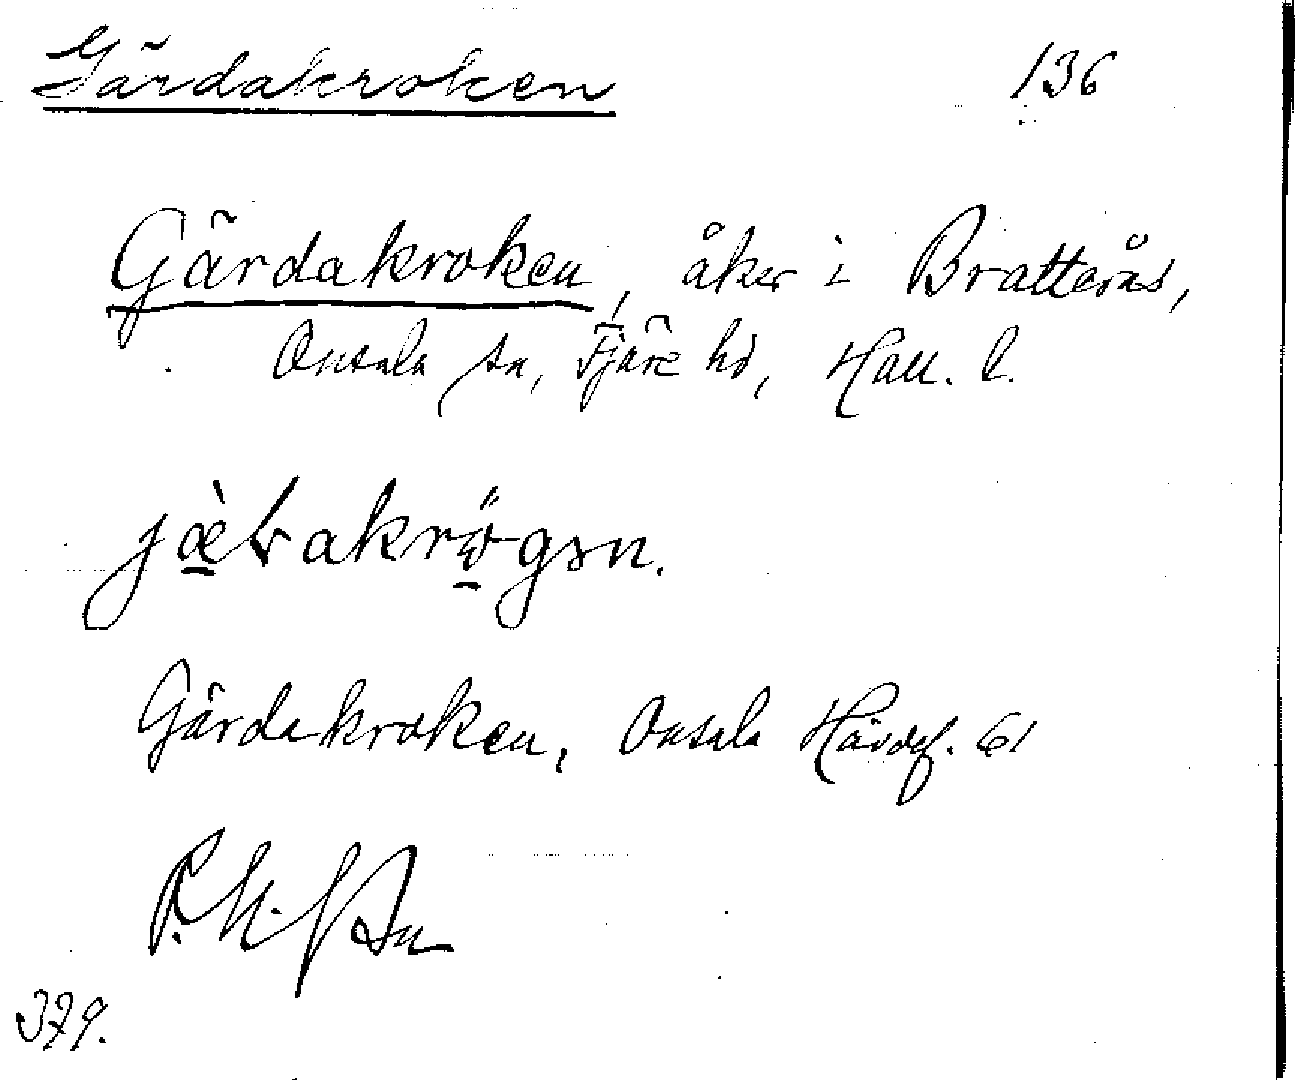 Gärdakroken 136
Gärdakroken, åker i Bratterås,
Onsala sn, Fjäre hd, Hall. l.
Gärdakroken, Onsala Hävdef. 61
379.